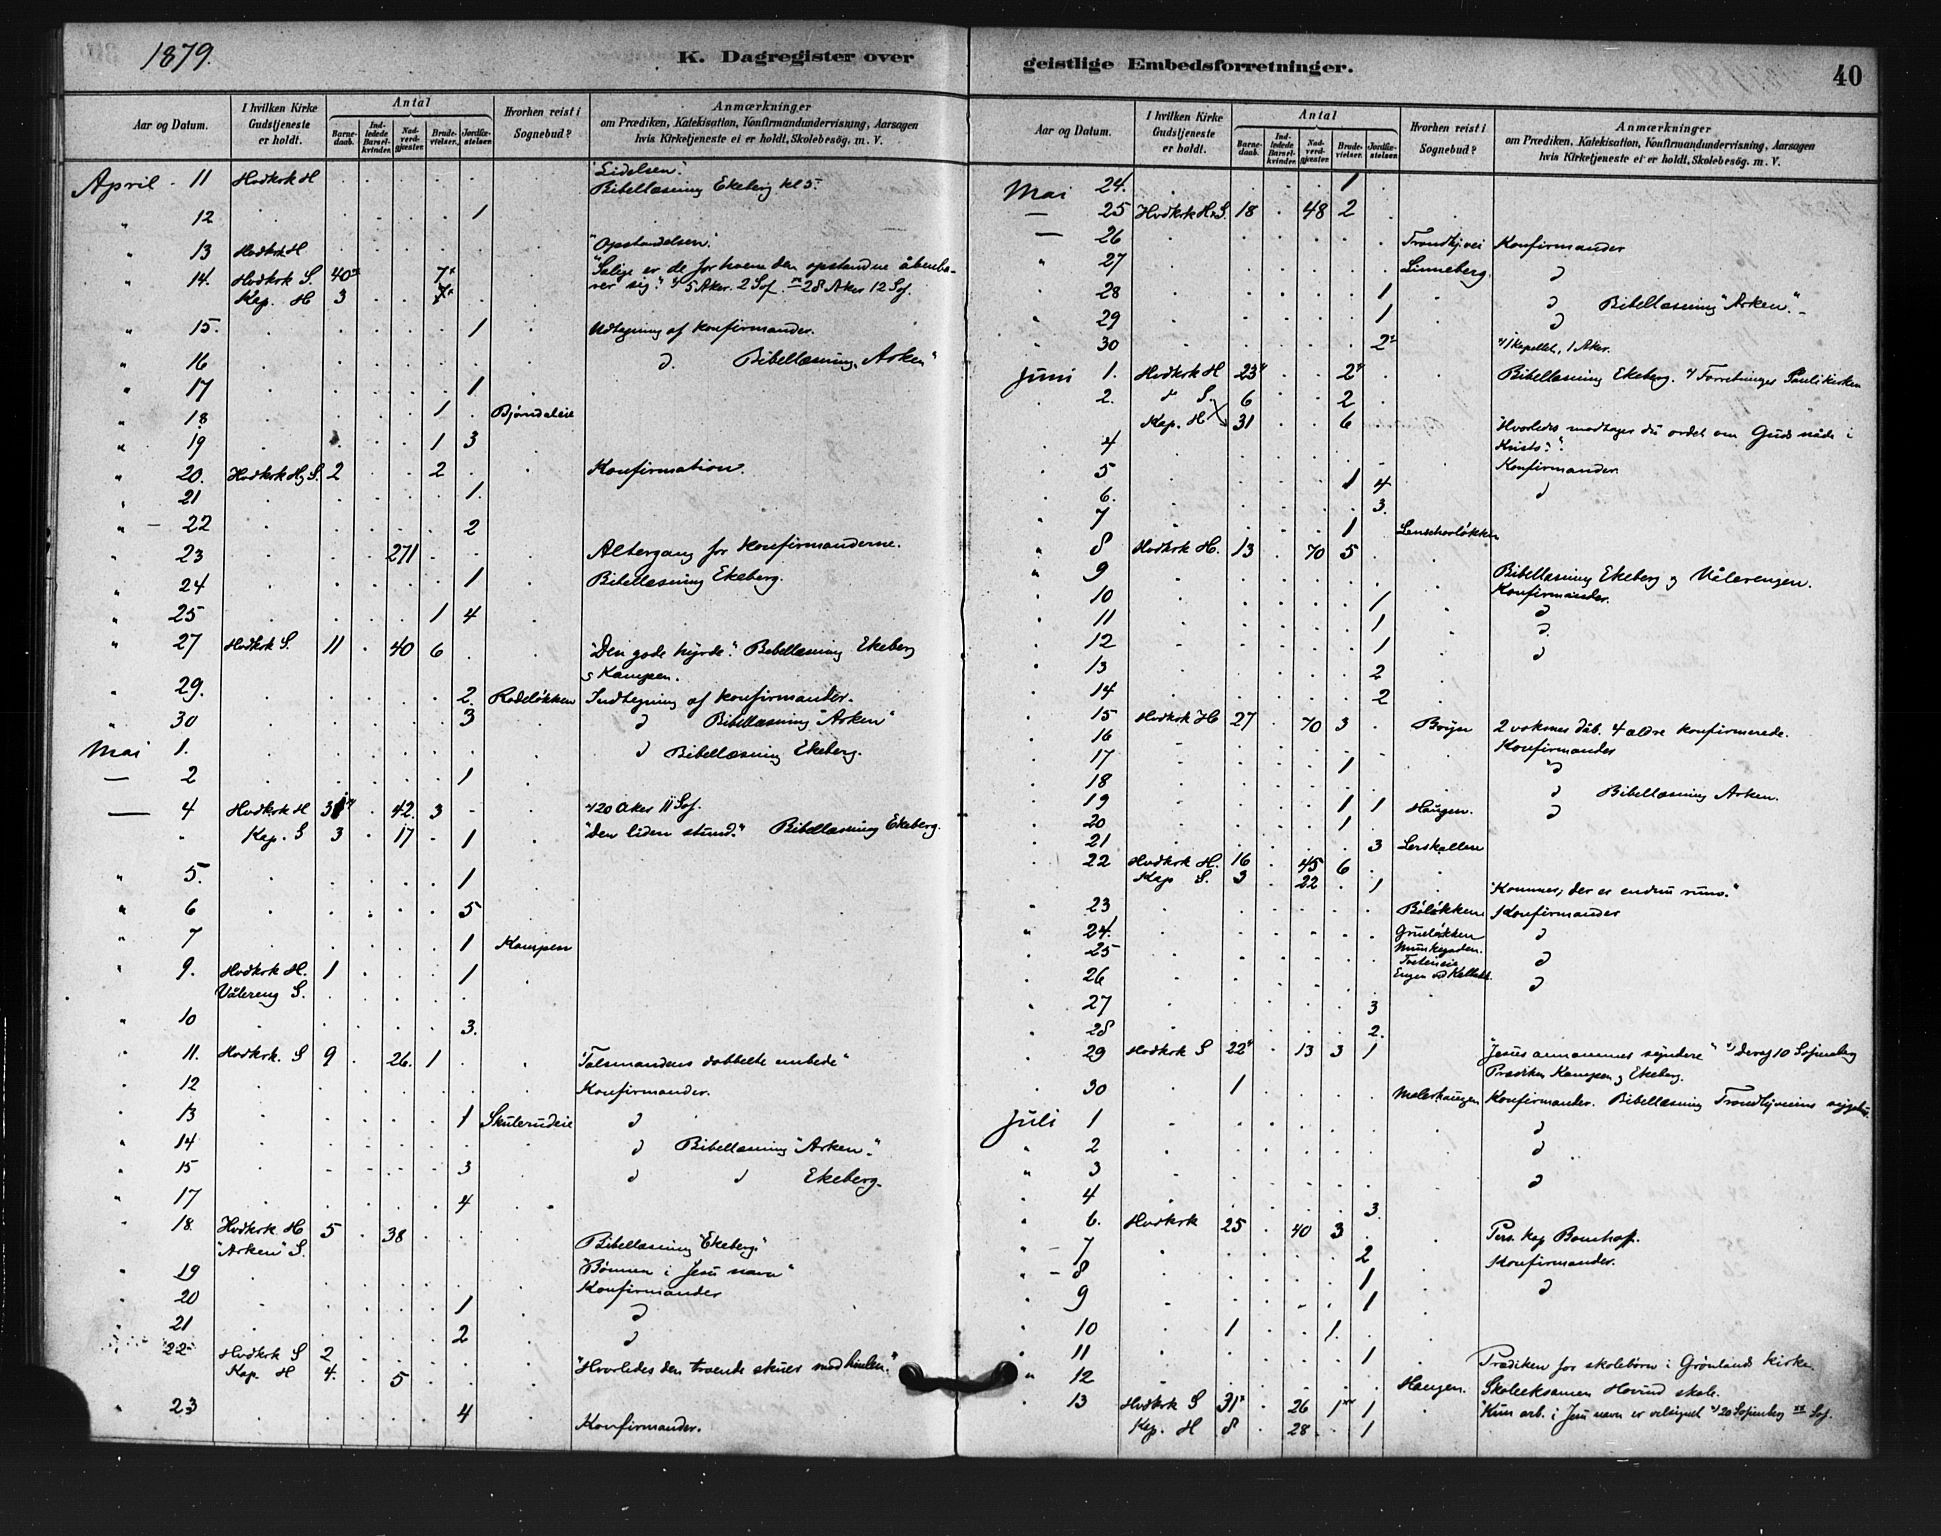 1879.
K. Dagregister over
Aar og Datum.
I hvilken Kirke Gudstjeneste er holdt.
Antal
Barnedaab.
Indledede Barselkvinder.
Nadverdgjester.
Brudevielser.
Jordfæstelser.
Hvorhen reist i Sognebud?
Anmærkninger
om Prædiken, Katekisation, Konfirmandundervisning, Aarsagen
hvis Kirketjeneste ei er holdt, Skolebesög. m. V.
April 11 Hvdkrk H "Lidelsen".
Bibellæsning Ekeberg kl 5.
" 12 1
" 13 Hvdkrk H "Opstandelsen".
" 14. Hvdkrk S. 40 7 "Salige er de for hvem den opstandne åbenba-
Kap. H 3 7 rer sig." 5 Aker. 2 Sof. 28 Aker 12 Sof.
" 15. 1 Udtegning af Konfirmander.
" 16 d. Bibellæsning "Arken"
" 17 1
" 18 1 Bjørndaleie
" 19 1 3
" 20. Hvdkrk H, S. 2 2 Konfirmation.
" 21 1.
" 22 2
" 23 271 Altergang for Konfirmanderne.
" 24 1 Bibellæsning Ekeberg.
" 25 1 4
" 27 Hvdkrk S. 11 40 6 "Den gode hyrde". Bibellæsning Ekeberg
g Kampen.
" 29. 2. Rodeløkken Indtegning af Konfirmander.
" 30 3 d Bibellæsning "Arken"
Mai 1. d Bibellæsning Ekeberg.
— 2 1
— 4 Hvdkrk H 42. 3 20 Aker 11 Sof.
" Kap. S 3 17 1 "Den liden stund." Bibellæsning Ekeberg.
" 5. 1
" 6 5
" 7 1 Kampen
" 9. Hvdkrk H. 1 1
Vålereng S.
" 10 3.
" 11. Hvdkrk. S 9 26. 1 "Talsmandens dobbelte embede"
" 12 Konfirmander.
" 13 1 Skuterudeie d
" 14 d Bibellæsning "Arken".
" 15 3 d d Ekeberg.
" 17 4
" 18. Hvdkrk H 5 38 Bibellæsning "Ekeberg"
"Arken" S. "Bønnen i Jesu navn"
" 19 Konfirmander
" 20 1 d
" 21 2 d
22 Hvdkrk S 2 "Hvorledes den troende skues mod himlen."
Kap. H 4. 5
" 23 4 Konfirmander.
geistlige Embedsforretninger.
40
Aar og Datum.
I hvilken Kirke Gudstjeneste er holdt.
Antal
Barnedaab.
Indledede Barselkvinder.
Nadverdgjester.
Brudevielser.
Jordfæstelser.
Hvorhen reist i Sognebud?
Anmærkninger
om Prædiken, Katekisation, Konfirmandundervisning, Aarsagen
hvis Kirketjeneste ei er holdt, Skolebesög. m. V.
Mai 24. 1
— 25 Hvdkrk H, S. 18 48 2
— 26 Trondhj.vei Konfirmander
" 27 Linneberg. d
" 28 1 d Bibellæsning "Arken".
" 29 1 d
" 30 2 1 Kapellet, 1 Aker.
Juni 1. Hvdkrk H 23 2 Bibellæsning Ekeberg. Forretninger Paulikirken
2. d S. 6 2
Kap. H 31 6 "Hvorledes modtager du ordet om Guds nåde i
4 Kristo?"
" 5 1 4 Konfirmander.
" 6. 3. d
" 7 1
" 8 Hvdkrk H. 13 70 5
" 9 Bibellæsning Ekeberg g Vålerengen.
" 10 1 Konfirmander.
" 11 1 d
" 12 1 d
" 13 2 d
" 14 2
" 15 Hvdkrk H 27 70 3 2 voksnes dåb. 4 ældre konfirmerede.
16 Konfirmander
17 1 d
18 d Bibellæsning Arken.
19 1 1 Haugen. d
20 1
21 3 Lerskallen
22 Hvdkrk H. 16 45 6
Kap S. 3 22 1 "Kommer, der er endnu rum."
23 Konfirmander
" 24. Grueløkken d
" 25 Munkegaden. d
" 26 d
" 27 3
" 28 2.
" 29 Hvdkrk S 22 13 3 1 "Jesus annammer syndere" deraf 10 Sofienberg
Prædiken Kampen g Ekeberg.
" 30 1 Malerhaugen Konfirmander. Bibellæsning
Juli 1 d
" 2 d
" 3 d
" 4 3.
" 6. Hvdkrk 25 40 3 Pers. Kap
" 7 2 Konfirmander.
" 8 1 d
" 9 1
" 10 1 1.
" 11 1 Prædiken for skolebørn i Grønlands kirke
" 12 Haugen. Skoleeksamen Hovind skole.
13 Hvdkrk S 31 26 1 1 "Kun arb. i Jesu navn er velsignet" 20 Sofienberg Sof.
Kap. H 8 28 1